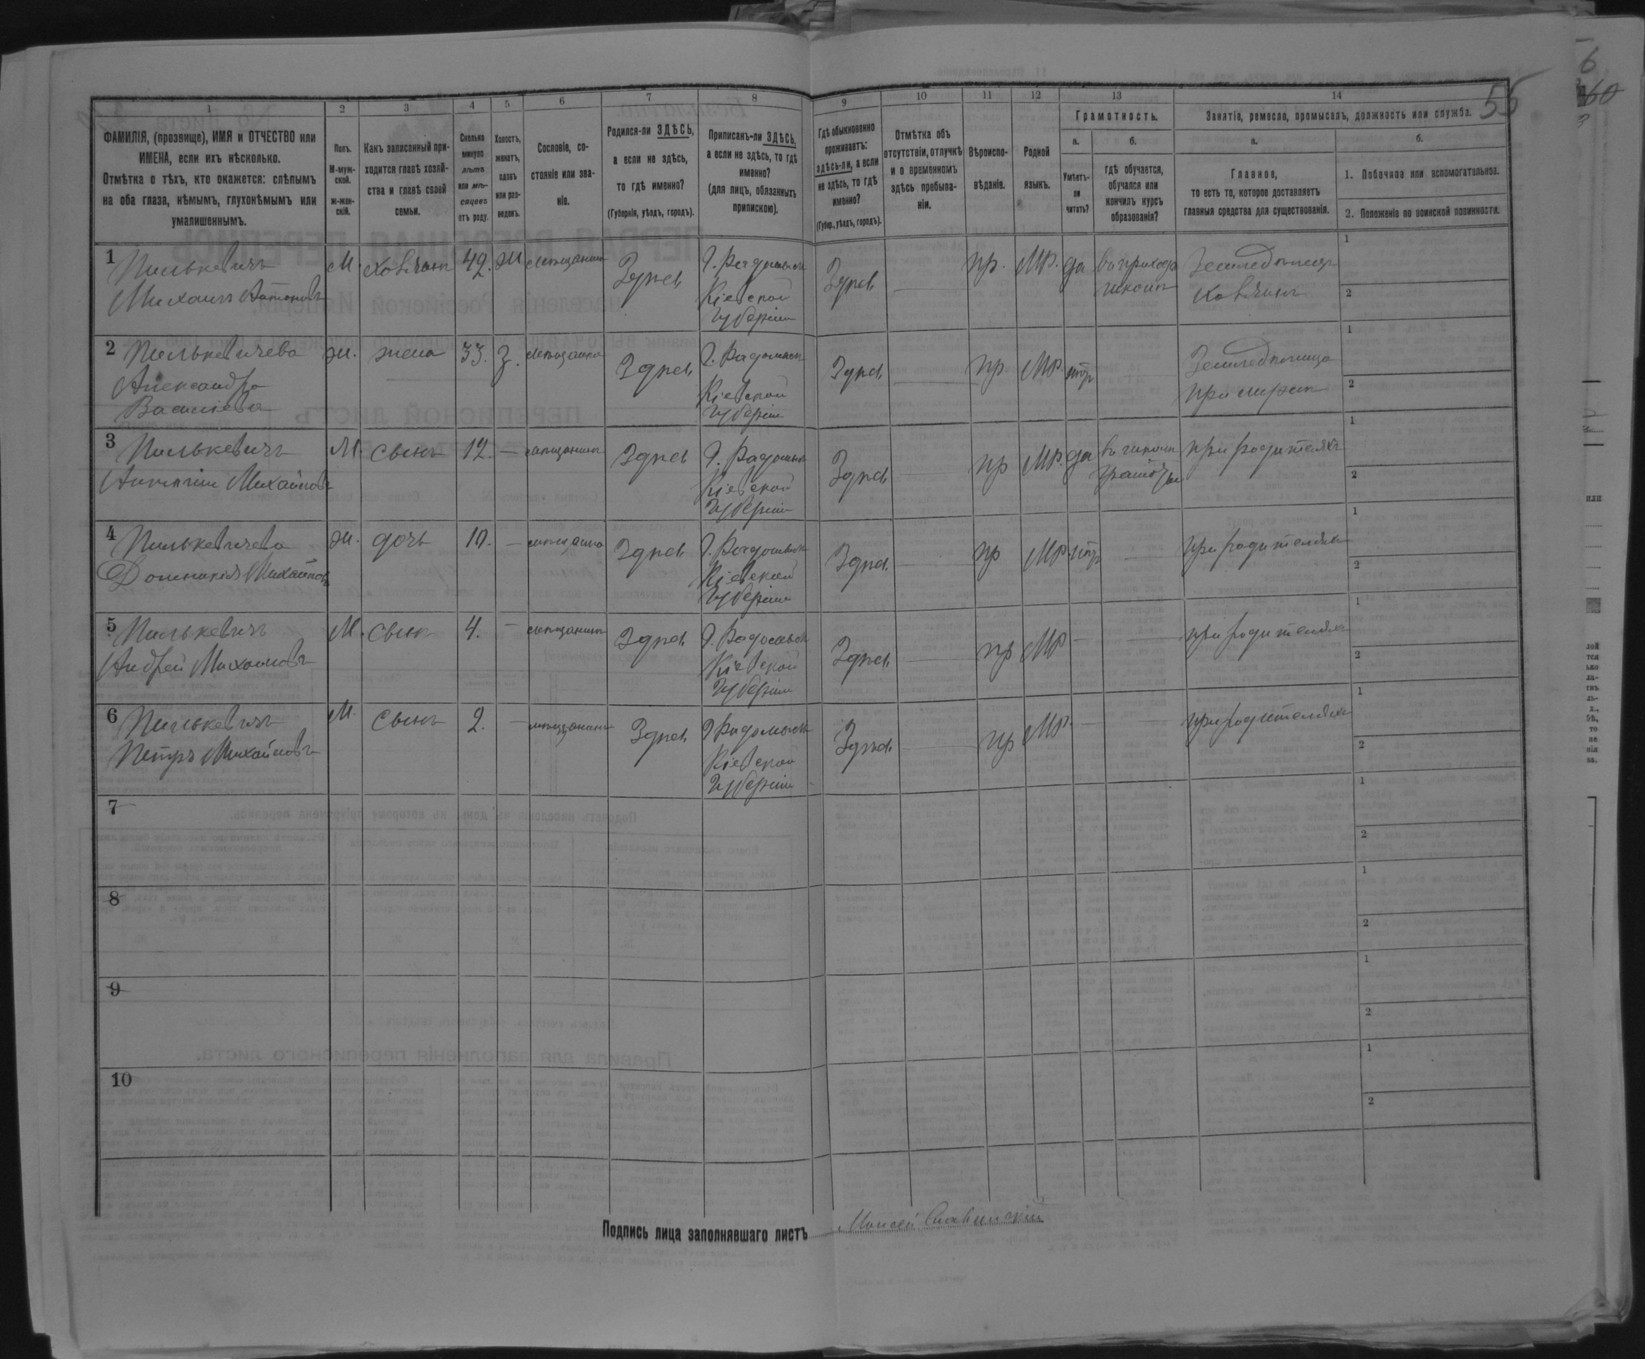 55
1 2 3 4 5 6 7 8 9 10 11 12 13 14
ФАМИЛІЯ, (прозвище), ИМЯ и ОТЧЕСТВО или
ИМЕНА, если ихъ нѣсколько.
Отмѣтка о тѣхъ, кто окажется: слѣпымъ
на оба глаза, нѣмымъ, глухонѣмымъ или
умалишеннымъ.
Полъ.
М-муж-
ской.
ж-жен-
скій.
Какъ записанный при-
ходится главѣ хозяй-
ства и главѣ своей
семьи.
Сколько
минуло
лѣтъ
или мѣ-
сяцевъ
отъ роду.
Холостъ,
женатъ,
вдовъ
или раз-
веденъ.
Сословіе, со-
стояніе или зва-
ніе.
Родился-ли ЗДѢСЬ,
а если не здѣсь,
то гдѣ именно?
(Губернія, уѣздъ, городъ).
Приписанъ-ли ЗДѢСЬ,
а если не здѣсь, то гдѣ
именно?
(для лицъ, обязанныхъ
припискою).
Гдѣ обыкновенно
проживаетъ:
здѣсь-ли, а если
не здѣсь, то гдѣ
именно?
(Губер., уѣздъ, городъ).
Отмѣтка объ
отсутствіи, отлучкѣ
и о временномъ
здѣсь пребыва-
ніи.
Вѣроиспо-
вѣданіе.
Родной
языкъ.
Грамотность.
а.
Умѣетъ-
ли
читать?
б.
гдѣ обучается,
обучался или
кончилъ курсъ
образованія?
Занятіе, ремесло, промыселъ, должность или служба.
а.
Главное,
то есть то, которое доставляетъ
главныя средства для существованія.
б.
1. Побочное или вспомогательное.
2. Положеніе по воинской повинности.
1 Пилькевичъ М. хозяинъ 42. ж мѣщанинъ Здѣсь Г. Радомысль Здѣсь — пр. Мр. да въ приход Земледѣлецъ 1
Михаилъ Антоновъ Кіевской школѣ хозяинъ 2
губерніи
2 Пилькевичева ж. жена 33. з. мѣщанка Здѣсь Г. Радомысль Здѣсь — пр Мр. нѣтъ — Земледѣлица 1
Александра Кіевской при мужѣ 2
Васильева губерніи
3 Пилькевичъ М. сынъ 12. — мѣщанинъ Здѣсь Г. Радомысль Здѣсь — пр Мр. да въ школѣ при родителяхъ 1
Михайловъ Кіевской грамоты 2
губерніи
4 Пилькевичева ж. дочь 10. — мѣщанка Здѣсь Г. Радомысль Здѣсь — пр Мр нѣтъ — при родителяхъ 1
Домникія Михайлов Кіевской 2
губерніи
5 Пилькевичъ М. сынъ 4. — мѣщанинъ Здѣсь Г. Радомысль Здѣсь — пр Мр — — при родителяхъ 1
Андрей Михайловъ Кіевской 2
губерніи
6 Пилькевичъ М. сынъ 2. — мѣщанинъ Здѣсь Г Радомысль Здѣсь пр Мр. — — при родителяхъ 1
Петръ Михайловъ Кіевской 2
губерніи
7 1
2
8 1
2
9 1
2
10 1
2
Подпись лица заполнявшаго листъ Моисей